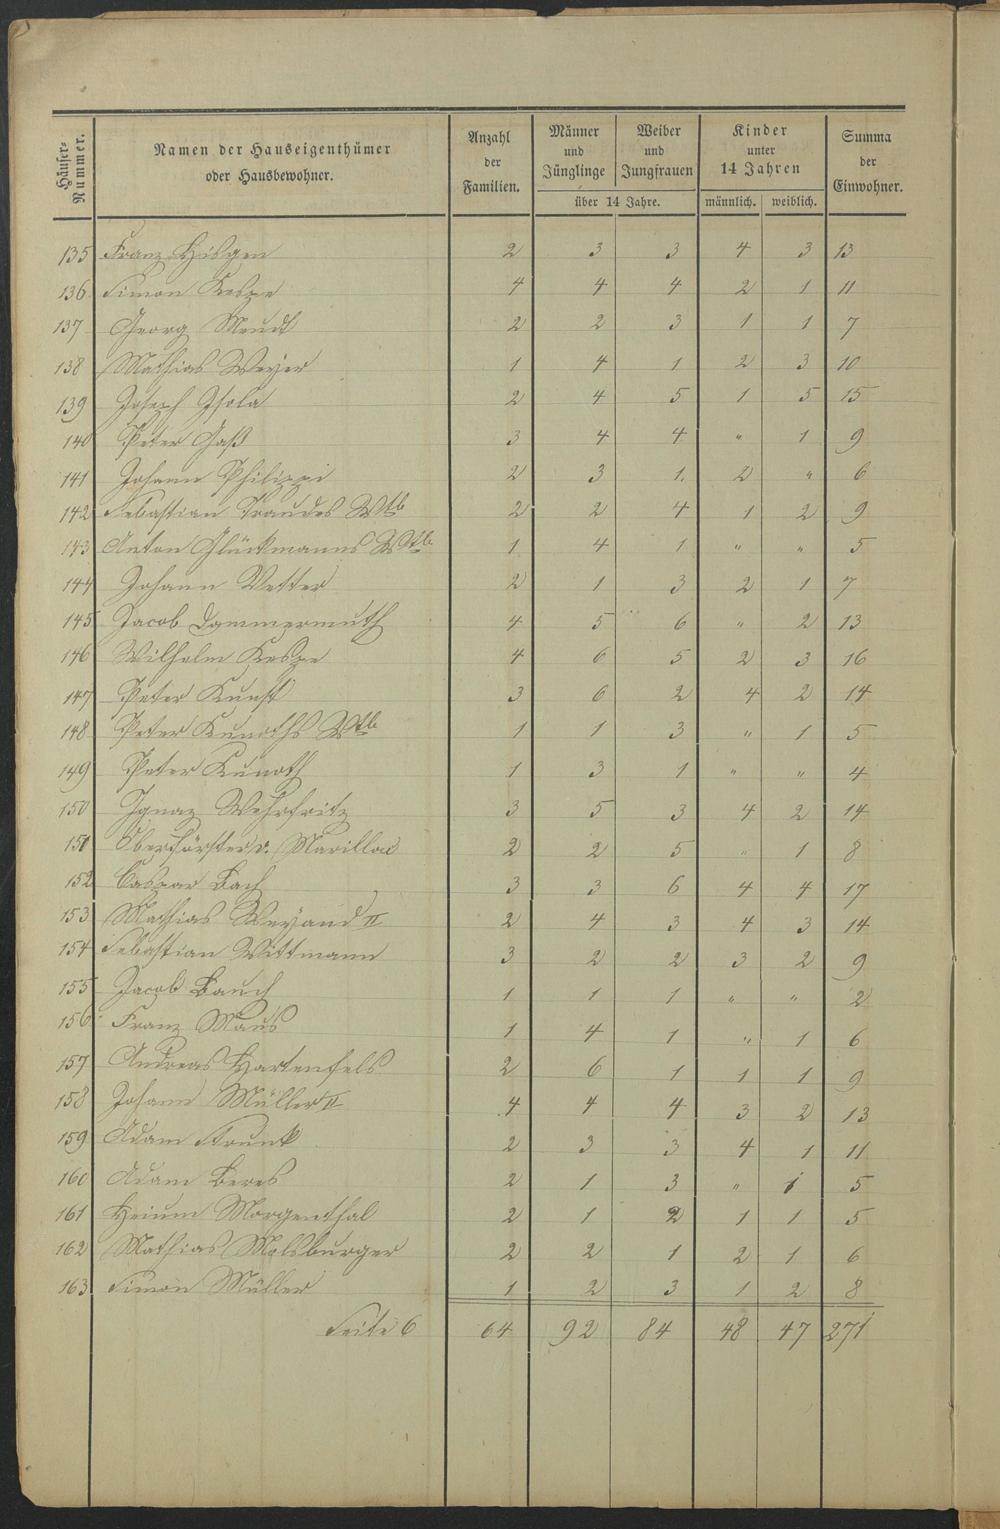 Häuser-Nummer.
Namen der Hauseigenthümer oder Hausbewohner.
Anzahl der Familien.
Männer und Jünglinge
Weiber und Jungfrauen
über 14 Jahre.
Kinder unter 14 Jahren
männlich. weiblich.
Summa der Einwohner.
135 Franz Hisgen 2 3 3 4 3 13
136 Simon Kespe 4 4 4 2 1 11
137 Georg Meudt 2 2 3 1 1 7
138 Mathias Weyer 1 4 1 2 3 10
139 Joseph Isola 2 4 5 1 5 15
140 Peter Gaß 3 4 4 " 1 9
141 Johann Philippi 2 3 1. 2 " 6
142 Sebastian Traudes Wtb 2 2 4 1 2 9
143 Anton Glückmanns Wtb 1 4 1 " " 5
144 Johann Vetter 2 1 3 2 1 7
145 Jacob Dommermuth 4 5 6 " 2 13
146 Wilhelm Kespe 4 6 5 2 3 16
147 Peter Kunst 3 6 2 4 2 14
148 Peter Kunoths Wtb 1 1 3 " 1 5
149 Peter Kunoth 1 3 1 " " 4
150 Ignaz Wehrfritz 3 5 3 4 2 14
151 Oberförster v. Marillac 2 2 5 " 1 8
152 Caspar Bach 3 3 6 4 4 17
153 Mathias Weyand II 2 4 3 4 3 14
154 Sebastian Wittmann 3 2 2 3 2 9
155 Jacob Bauch 1 1 1 " " 2
156 Franz Maus 1 4 1 " 1 6
157 Andreas Hartenfels 2 6 1 1 1 9
158 Johann Müller II 4 4 4 3 2 13
159 Adam Strunk 2 3 3 4 1 11
160 Adam Beres 2 1 3 " 1 5
161 Morgenthal 2 1 2 1 1 5
162 Mathias Molsburger 2 2 1 2 1 6
163 Simon Müller 1 2 3 1 2 8
Seite 6 64 92 84 48 47 271